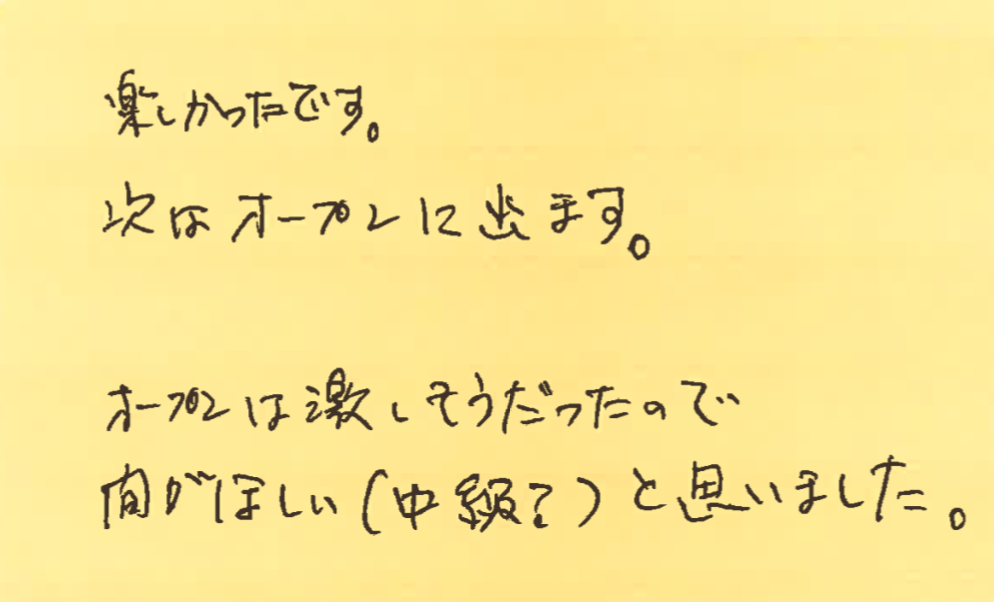 楽しかったです。
次はオープンに出ます。
オープンは激しそうだったので
間がほしい(中級?)と思いました。